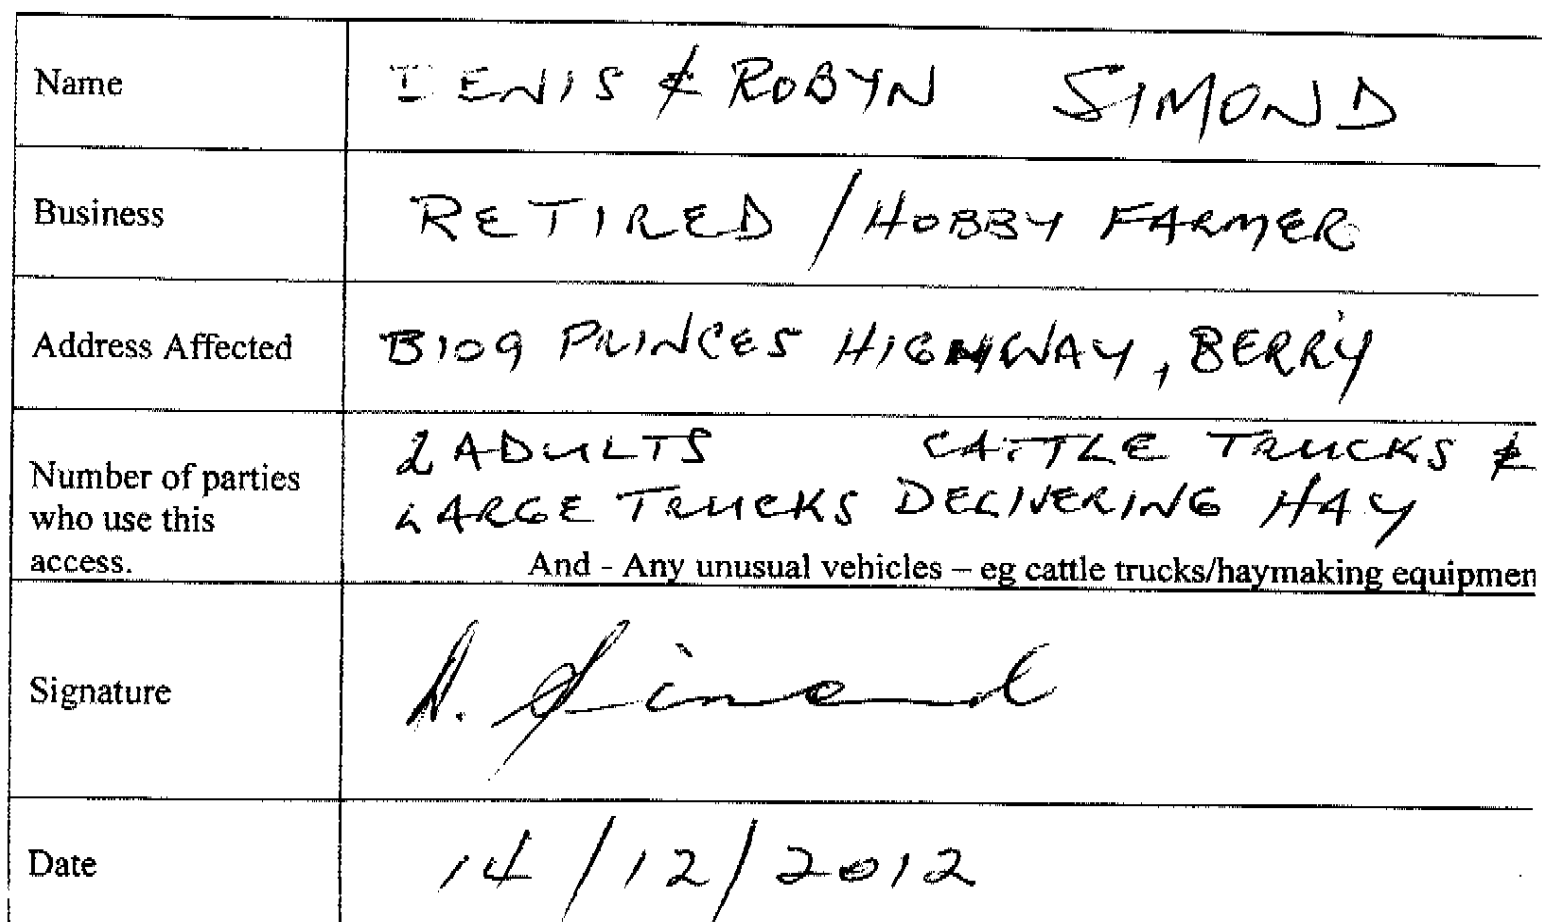 Name DENIS & ROBYN SIMOND
Business RETIRED / HOBBY FARMER
Address Affected B109 PRINCES HIGHWAY, BERRY
Number of parties who use this access.
2 ADULTS CATTLE TRUCKS &
LARGE TRUCKS DELIVERING HAY
And - Any unusual vehicles – eg cattle trucks/haymaking equipmen
Signature D. Simond
Date 14/12/2012